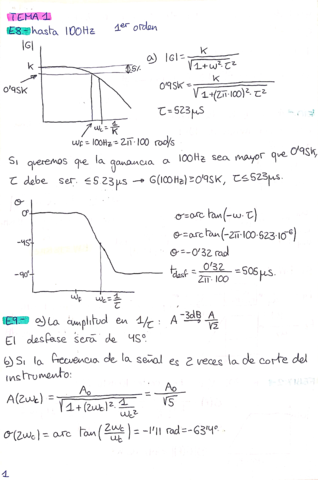 TEMA 1
E8- hasta 100Hz 1er orden
|G|
K
0'95K
5%
ωf = 100Hz = 2π·100 rad/s
a) |G| = K / √(1+ω²·τ²)
0'95K = K / √(1+(2π·100)²·τ²)
τ = 523 μs
Si queremos que la ganancia a 100Hz sea mayor que 0'95K,
τ debe ser ≤ 523 μs → G(100Hz) ≥ 0'95K, τ ≤ 523 μs.
σ
0°
-45°
-90°
ωf ωc = 1/τ
σ = arc tan(-ω·τ)
σ = arc tan(-2π·100·523·10⁻⁶)
σ = -0'32 rad
tdesf = 0'32 / 2π·100 = 505 μs.
E9- a) La amplitud en 1/τ: A -3dB→ A/√2
El desfase será de 45°.
b) Si la frecuencia de la señal es 2 veces la de corte del
instrumento:
A(2ωt) = A₀ / √(1+(2ωt)²·1/ωt²) = A₀/√5
σ(2ωc) = arc tan(2ωt/ωt) = -1'11 rad = -63'4°.
1